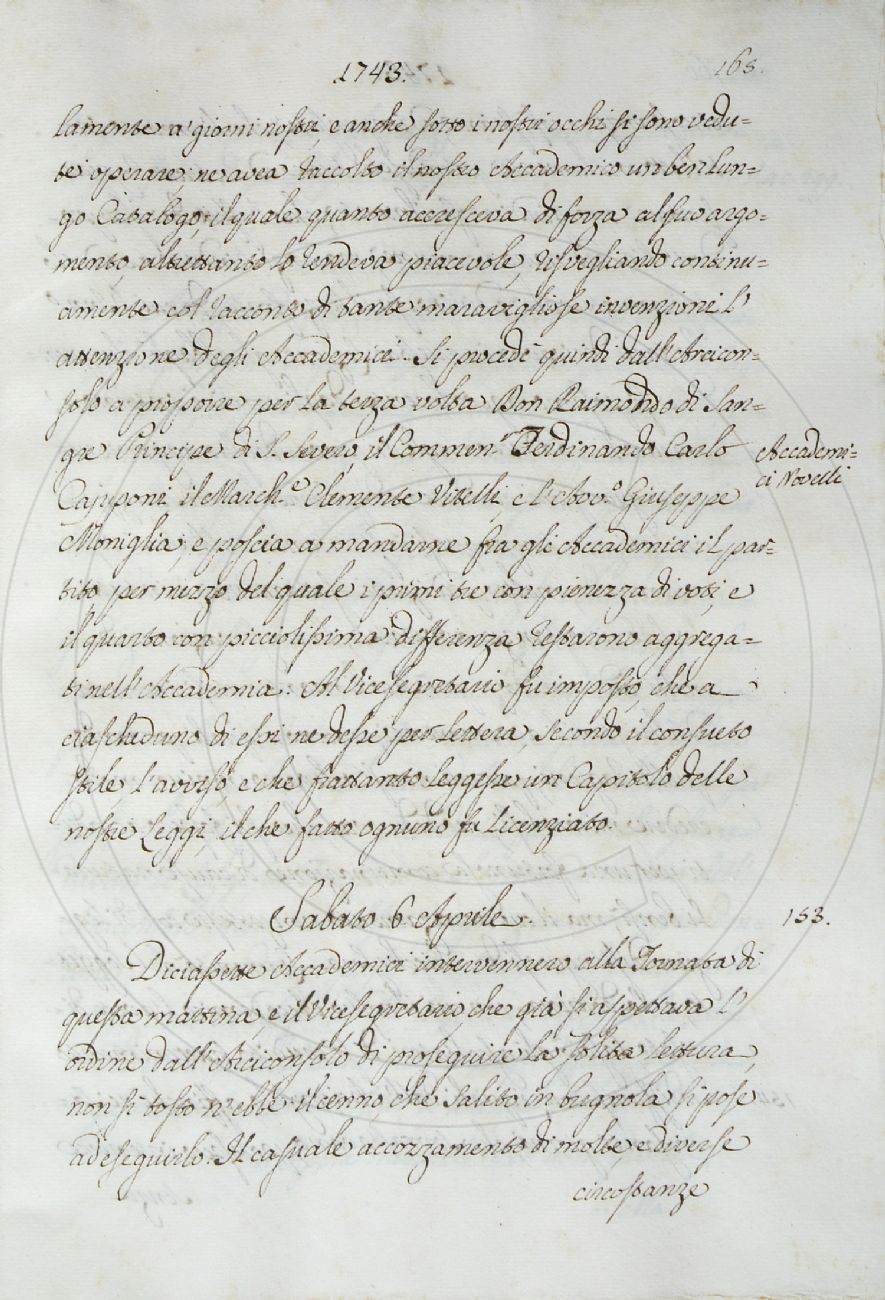 1743.
165.
lamente a' giorni nostri, e anche sotto i nostri occhi si sono vedu=
te operare; ne avea raccolto il nostro Accademico un ben lun=
go Catalogo, il quale quanto accresceva di forza al suo argo=
mento, altrettanto lo rendeva piacevole, risvegliando continu=
amente col racconto di tante maravigliose invenzioni l'
attenzione degli Accademici. Si procedè quindi dall'Arcicon=
solo a proporre per la terza volta Don Raimondo di San=
gre Principe di S. Severo, il Commen.r Ferdinando Carlo
Capponi, il March.e Clemente Vitelli, e l'Avv.o Giuseppe
Moniglia; e poscia a mandarne fra gli Accademici il par=
tito per mezzo del quale i primi tre con pienezza di voti, e
il quarto con picciolissima differenza restarono aggrega=
ti nell'Accademia. Al Vicesegretario fu imposto, che a
ciascheduno di essi ne desse per lettera, secondo il consueto
stile, l'avviso, e che frattanto leggesse un Capitolo delle
nostre Leggi, il che fatto ognuno fu licenziato.
Accademi=
ci Novelli
Sabato 6 Aprile.
153.
Diciassette Accademici intervennero alla Tornata di
questa mattina, e il Vicesegretario, che già si aspettava l'
ordine dall'Arciconsolo di proseguire la solita lettura,
non sì tosto n'ebbe il cenno che salito in bugnola si pose
ad eseguirlo. Il casuale accozzamento di molte, e diverse
circostanze